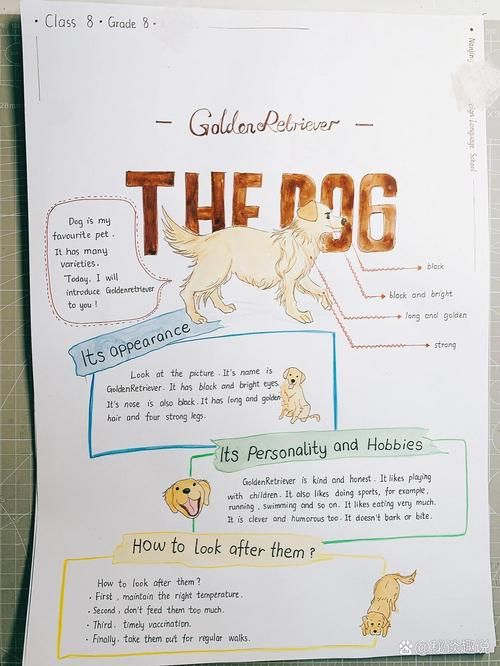 · Class 8 · Grade 8 ·
• Nanjing Language School
— GoldenRetriever —
THE DOG
Dog is my
favourite pet.
It has many
varieties.
Today, I will
introduce Goldenretriever
to you!
black
black and bright
long and golden
strong
Its appearance
Look at the picture. It's name is
GoldenRetriever. It has black and bright eyes.
It's nose is also black. It has long and golden
hair and four strong legs.
Its Personality and Hobbies
GoldenRetriever is kind and honest. It likes playing
with children. It also likes doing sports, for example,
running, swimming and so on. It likes eating very much.
It is clever and humorous too. It doesn't bark or bite.
How to look after them?
How to look after them?
• First, maintain the right temperature.
• Second, don't feed them too much.
• Third, timely vaccination.
• Finally, take them out for regular walks.